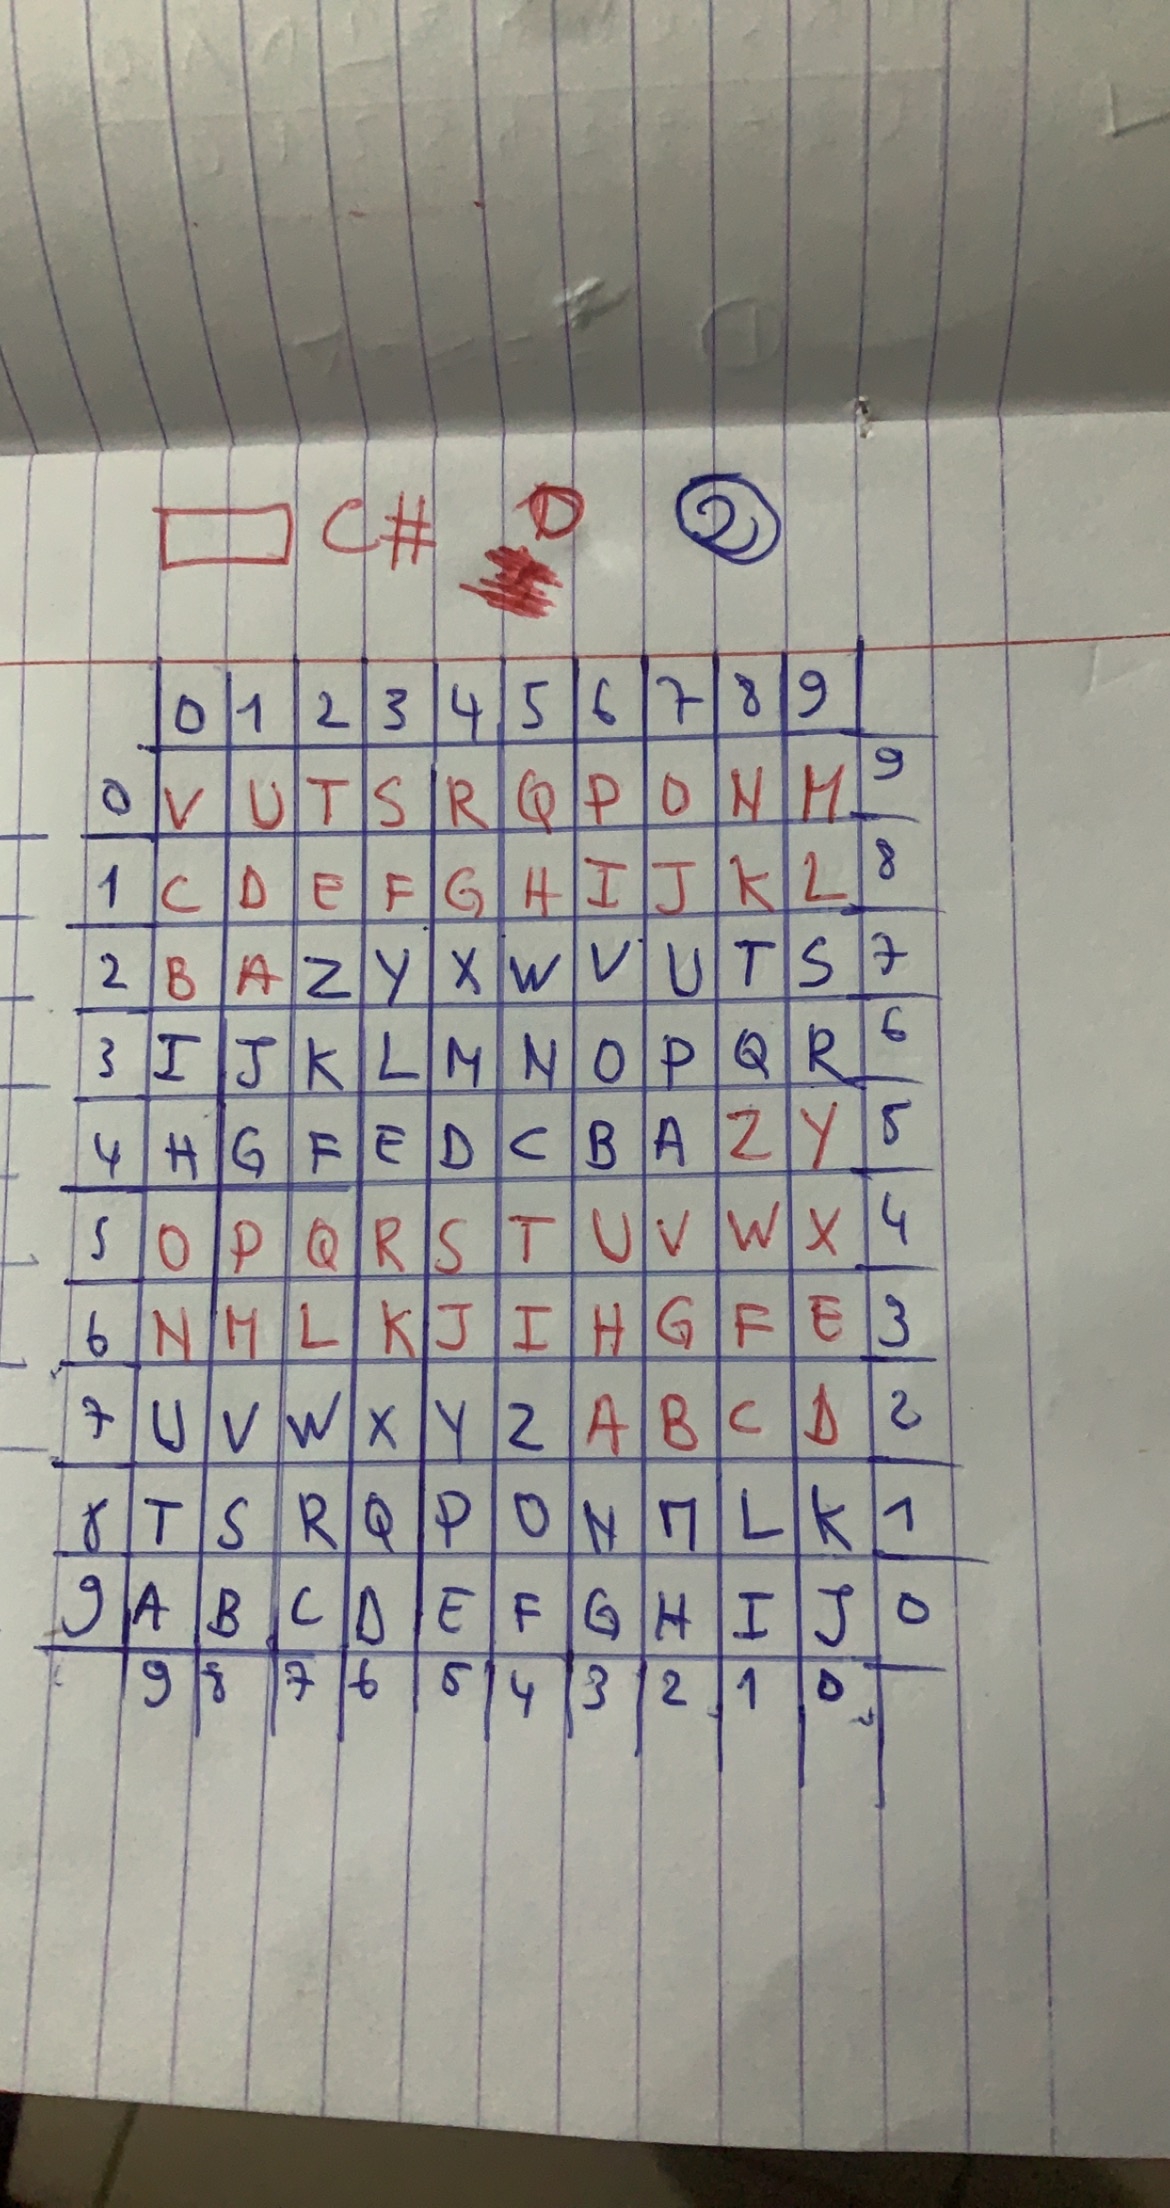 C# D 2
0 1 2 3 4 5 6 7 8 9
0 V U T S R Q P O N M 9
1 C D E F G H I J K L 8
2 B A Z Y X W V U T S 7
3 I J K L M N O P Q R 6
4 H G F E D C B A Z Y 5
5 O P Q R S T U V W X 4
6 N M L K J I H G F E 3
7 U V W X Y Z A B C D 2
8 T S R Q P O N M L K 1
9 A B C D E F G H I J 0
9 8 7 6 5 4 3 2 1 0